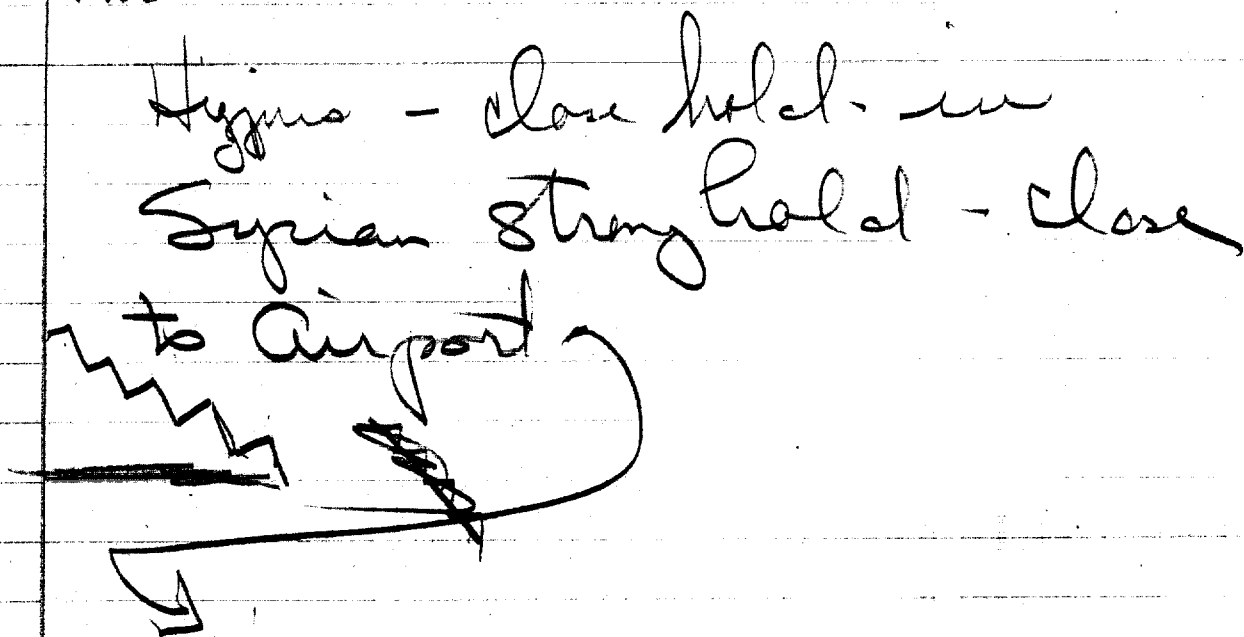 Higgins - close hold - in
Syrian stronghold - close
to Airport